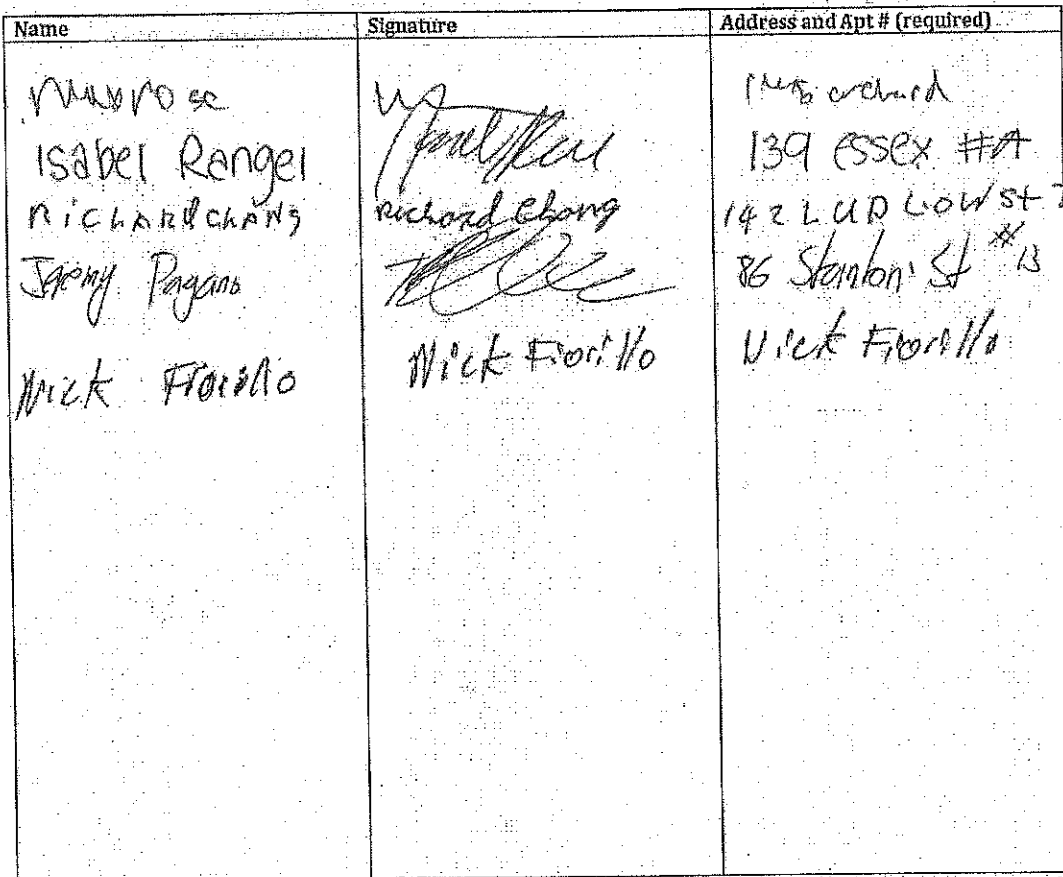 Name Signature Address and Apt # (required)
orchard
Isabel Rangel 139 Essex #A
RICHARD CHANG Richard Chang 142 LUDLOW St
Jeremy Pagano 86 Stanton St #13
Nick Fiorillo Nick Fiorillo Nick Fiorillo